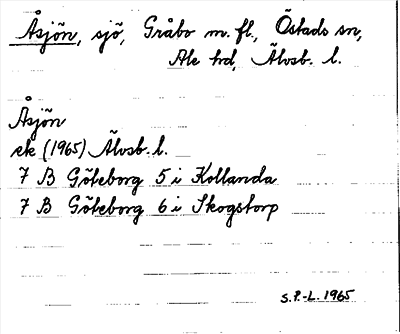 Åsjön, sjö, Gråbo m. fl., Östads sn,
Ale hd, Älvsb. l.
Åsjön
ek (1965) Älvsb. l.
7 B Göteborg 5 i Kollanda
7 B Göteborg 6 i Skogstorp
S.P.-L. 1965